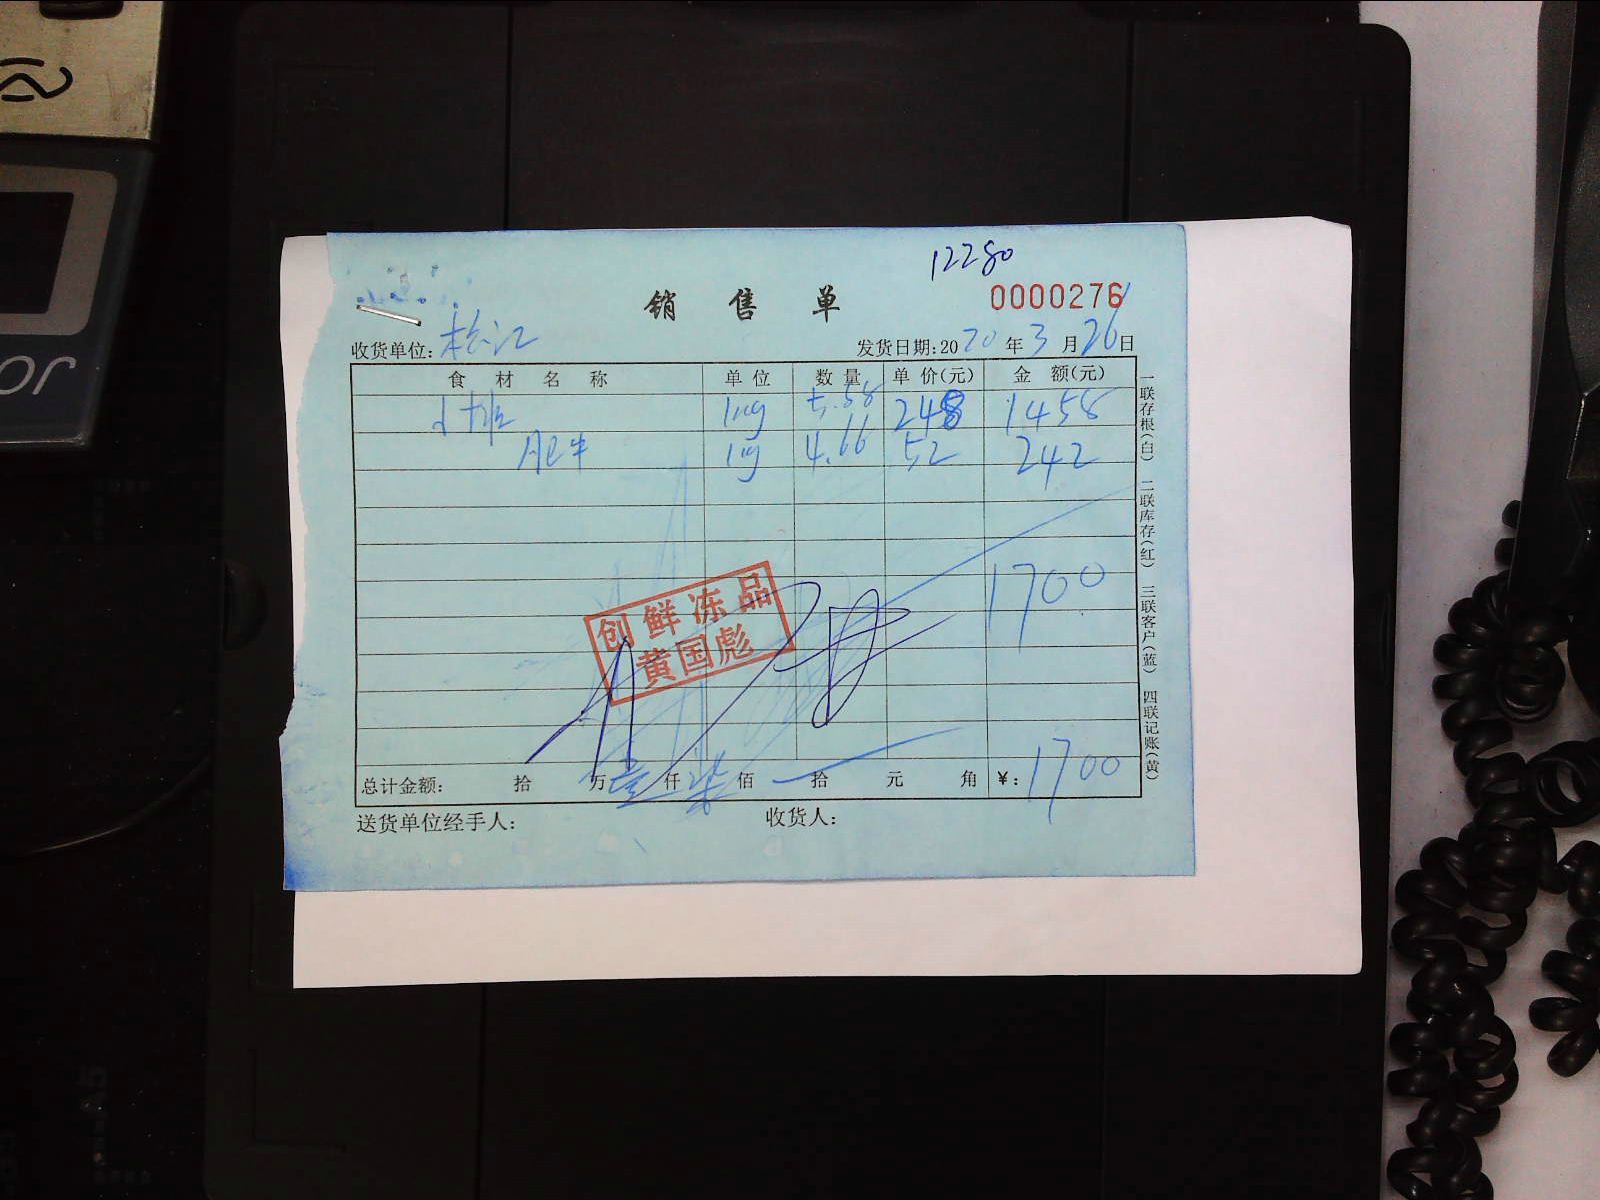 12280
销售单
0000276
收货单位: 松江
发货日期: 2020年3月26日
食材名称 单位 数量 单价(元) 金额(元)
小排 1kg 5.88 248 1458
肥牛 1kg 4.66 52 242
1700
创鲜冻品
黄国彪
总计金额: 拾 万 壹 仟 柒 佰 拾 元 角 ¥: 1700
送货单位经手人: 收货人:
一联存根(白) 二联库存(红) 三联客户(蓝) 四联记账(黄)
or